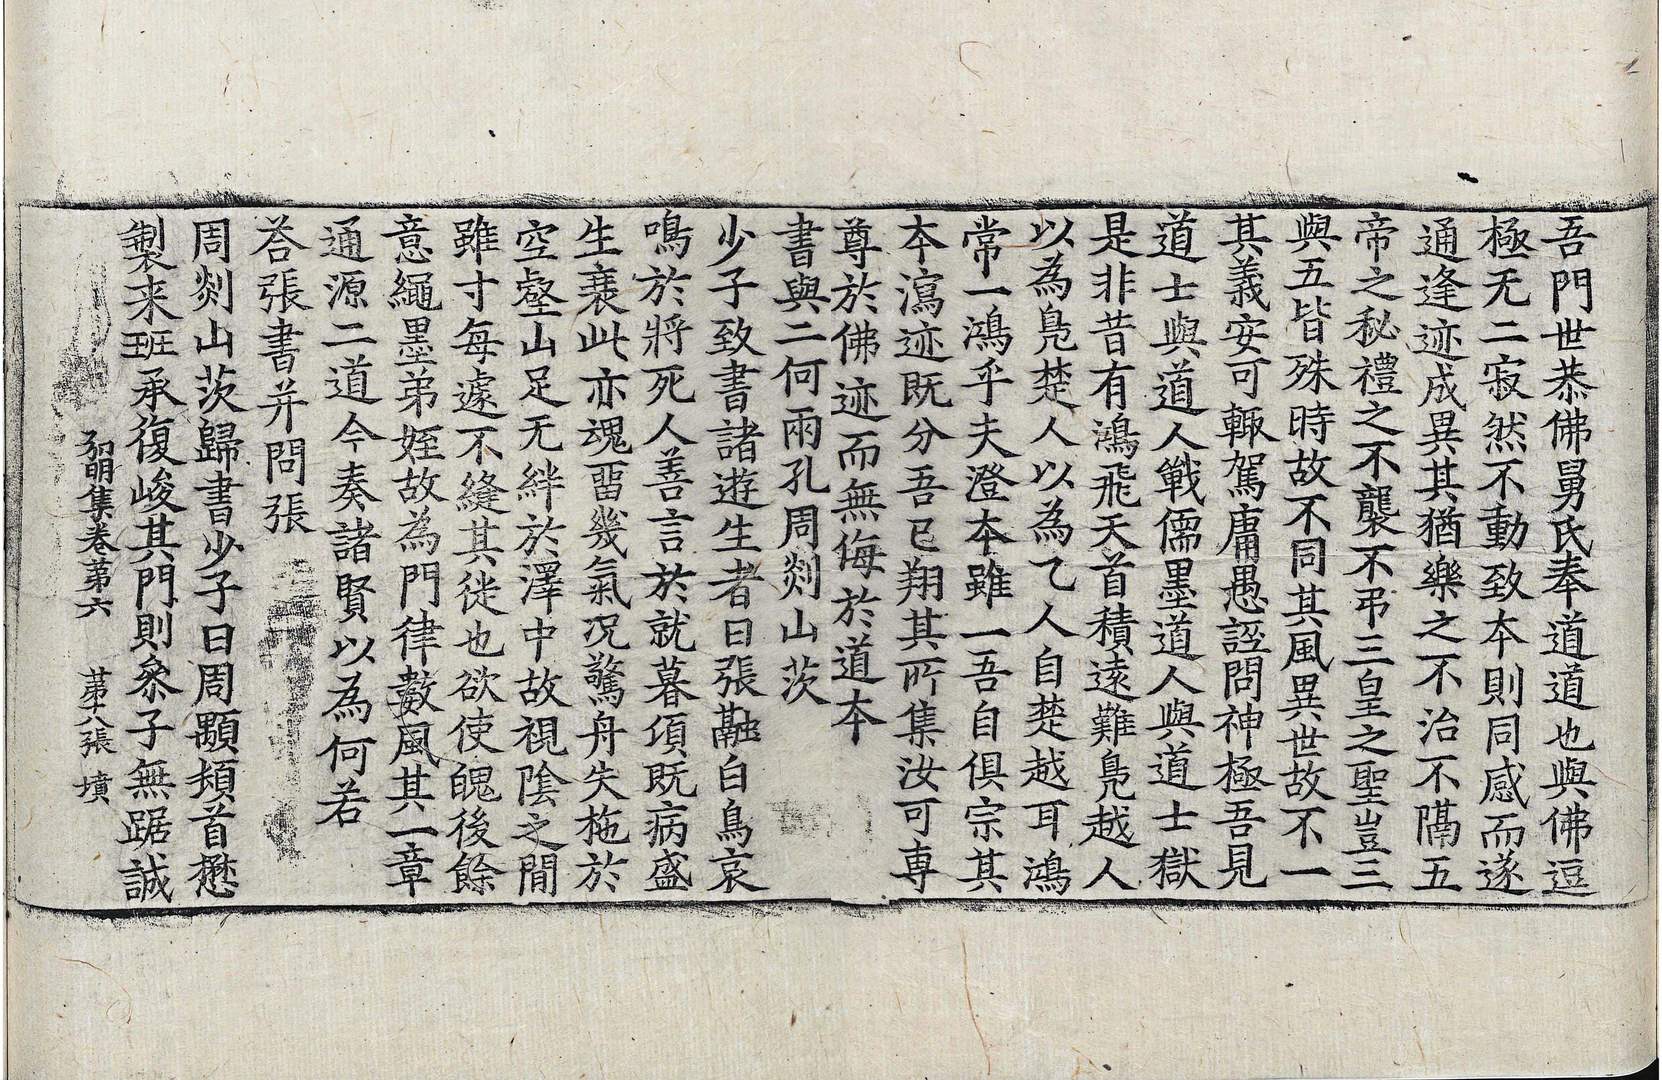 吾門世恭佛舅氏奉道道也與佛逗
極无二寂然不動致本則同感而遂
通逢迹成異其猶樂之不治不隔五
帝之秘禮之不襲不弔三皇之聖豈三
與五皆殊時故不同其風異世故不一
其義安可輒駕庸愚誣問神極吾見
道士與道人戰儒墨道人與道士獄
是非昔有鴻飛天首積遠難鳧越人
以為鳧楚人以為乙人自楚越耳鴻
常一鴻乎夫澄本雖一吾自俱宗其
本瀉迹既分吾已翔其所集汝可專
尊於佛迹而無侮於道本
書與二何兩孔周剡山茨
少子致書諸遊生者曰張融白鳥哀
鳴於將死人善言於就暮項既病盛
生衰此亦魂留幾氣况驚舟失柂於
空壑山足无絆於澤中故視陰之閒
雖寸每遽不縫其徙也欲使魄後餘
意繩墨弟姪故為門律數風其一章
通源二道今奏諸賢以為何若
荅張書并問張
周剡山茨歸書少子曰周顒頓首懋
製来班承復峻其門則叅子無踞誠
弘明集卷第六 第十八張 墳